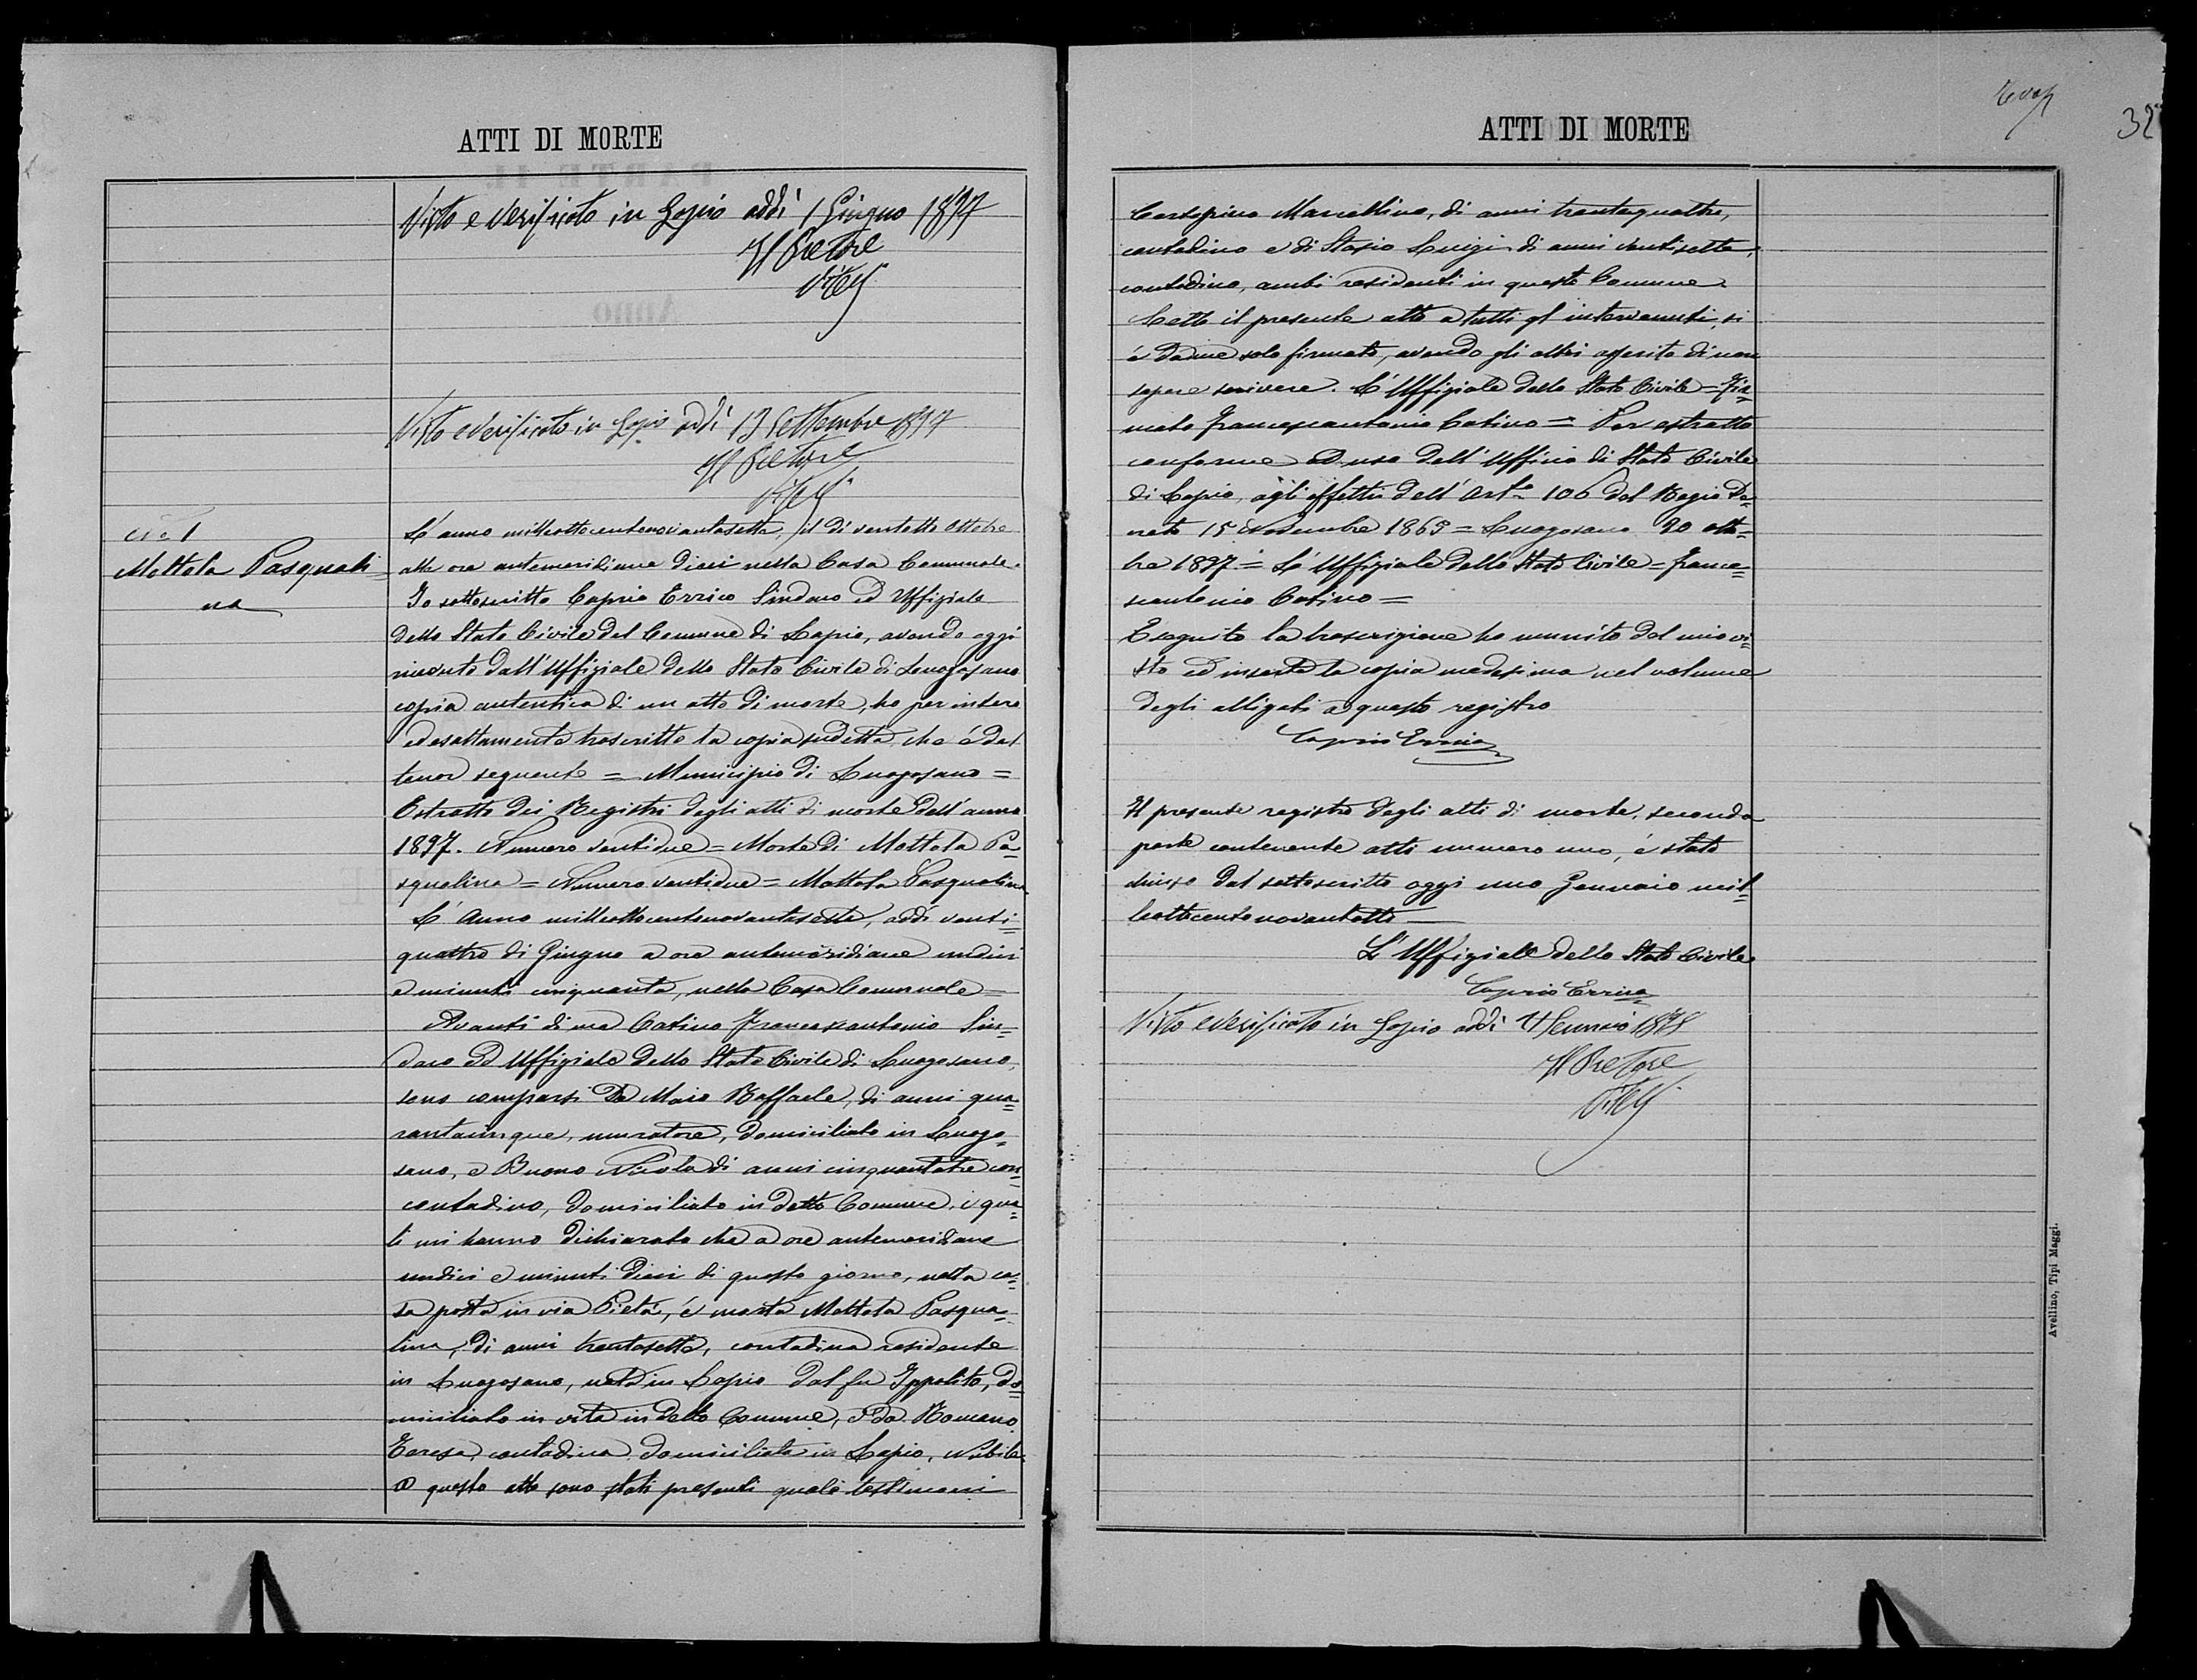 ATTI DI MORTE
Visto e Verificato in Lapio addì 1 Giugno 1897
Il Pretore
Visto e Verificato in Lapio addì 13 Settembre 1897
Il Pretore
N.o 1
Mottola Pasquali=
na
L'anno milleottocentonovantasette, il dì ventotto Ottobre
alle ore antemeridiane dieci nella Casa Comunale.
Io sottoscritto Caprio Errico Sindaco ed Uffiziale
dello Stato Civile del Comune di Lapio, avendo oggi
ricevuto dall'Uffiziale dello Stato Civile di Luogosano
copia autentica di un atto di morte, ho per intero
ed esattamente trascritto la copia sudetta, che è del
tenor seguente = Municipio di Luogosano =
Estratto dei Registri degli atti di morte dell'anno
1897. Numero ventidue = Morte di Mottola Pa=
squalina = Numero ventidue = Mottola Pasqualina
L'Anno milleottocentonovantasette, addì venti=
quattro di Giugno a ore antemeridiane undici
e minuti cinquanta, nella Casa Comunale =
Avanti di me Catino Francescantonio Sin=
daco ed Uffiziale dello Stato Civile di Luogosano,
sono comparsi De Maio Raffaele, di anni qua=
rantacinque, muratore, domiciliato in Luogo=
sano, e Buono Nicola di anni cinquantatre con=
contadino, domiciliato in detto Comune, i qua=
li mi hanno dichiarato che a ore antemeridiane
undici e minuti dieci di questo giorno, nella ca=
sa posta in via Pietà, è morta Mottola Pasqua=
lina, di anni trentasette, contadina residente
in Luogosano, nata in Lapio dal fu Ippolito, do=
miciliato in vita in detto Comune, e da Romano
Teresa, contadina domiciliata in Lapio, Nubile.
A questo atto sono stati presenti quali testimoni
ATTI DI MORTE
32
Marcellino, di anni trentaquattro,
contadino e di Stasio Luigi di anni ventisette,
contadino, ambi residenti in questo Comune.
Letto il presente atto a tutti gl'intervenuti, si
è da me solo firmato, avendo gli altri asserito di non
sapere scrivere. L'Uffiziale dello Stato Civile = Fir=
mato Francescantonio Catino = Per estratto
conforme ad uso dell'Ufficio di Stato Civile
di Lapio, agli effetti dell'Art.o 106 del Regio De=
creto 15 Novembre 1865 = Luogosano 20 otto=
bre 1897. = L'Uffiziale dello Stato Civile = France=
scantonio Catino =
Eseguita la trascrizione ho munito del mio vi=
sto ed inserta la copia medesima nel volume
degli alligati a questo registro
Caprio Errico
Il presente registro degli atti di morte, seconda
parte contenente atti numero uno, è stato
chiuso dal sottoscritto oggi uno Gennaio mil=
leottocentonovantotto
L'Uffiziale dello Stato Civile
Caprio Errico
Visto e Verificato in Lapio addì 11 Gennaio 1898
Il Pretore
Avellino, Tipi Maggi.